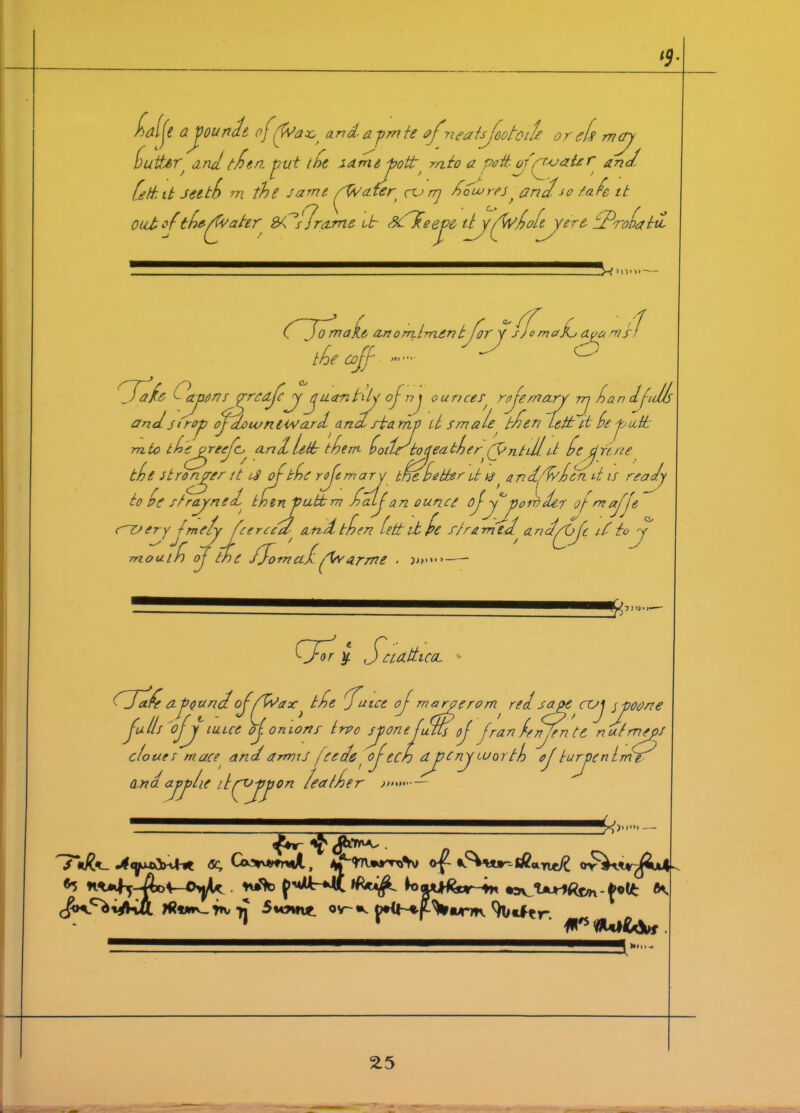 19.
halfe a pounde of Wax, and a pinte of neatsfoot oile or els may
butter, and then put the same pott into a pott of water and
lett it seeth in the same Water vij howres, and so take it
out of the Water & strame it & Keepe it y Whole yere Probatū
To make an ointment for y stomak against
the coff
Take Capons greasc y quantity of iij ounces, rosemary iij handfulls
and sirop of downeward and stamp it smale, then lett it be putt
into the greese, and lett them boile togeather Vntill it be grene
the stronger it is of the rosemary the better it is, and When it is ready
to be strayned, then putt in half an ounce of y powder of masse
very finely scerced, and then lett it be strained and Use it to y
mouth of the stomak Warme .
For y Sciattica
Take a pound of Wax, the Juice of margerom, red sage, vj spoone
fulls of y iuice of onions two sponefulls of frankensente nutmegs
cloues mace and annis seede of ech a penyworth of turpentine
and applie it Vppon leather
Take & of
in Sunne or a warm Water.
25